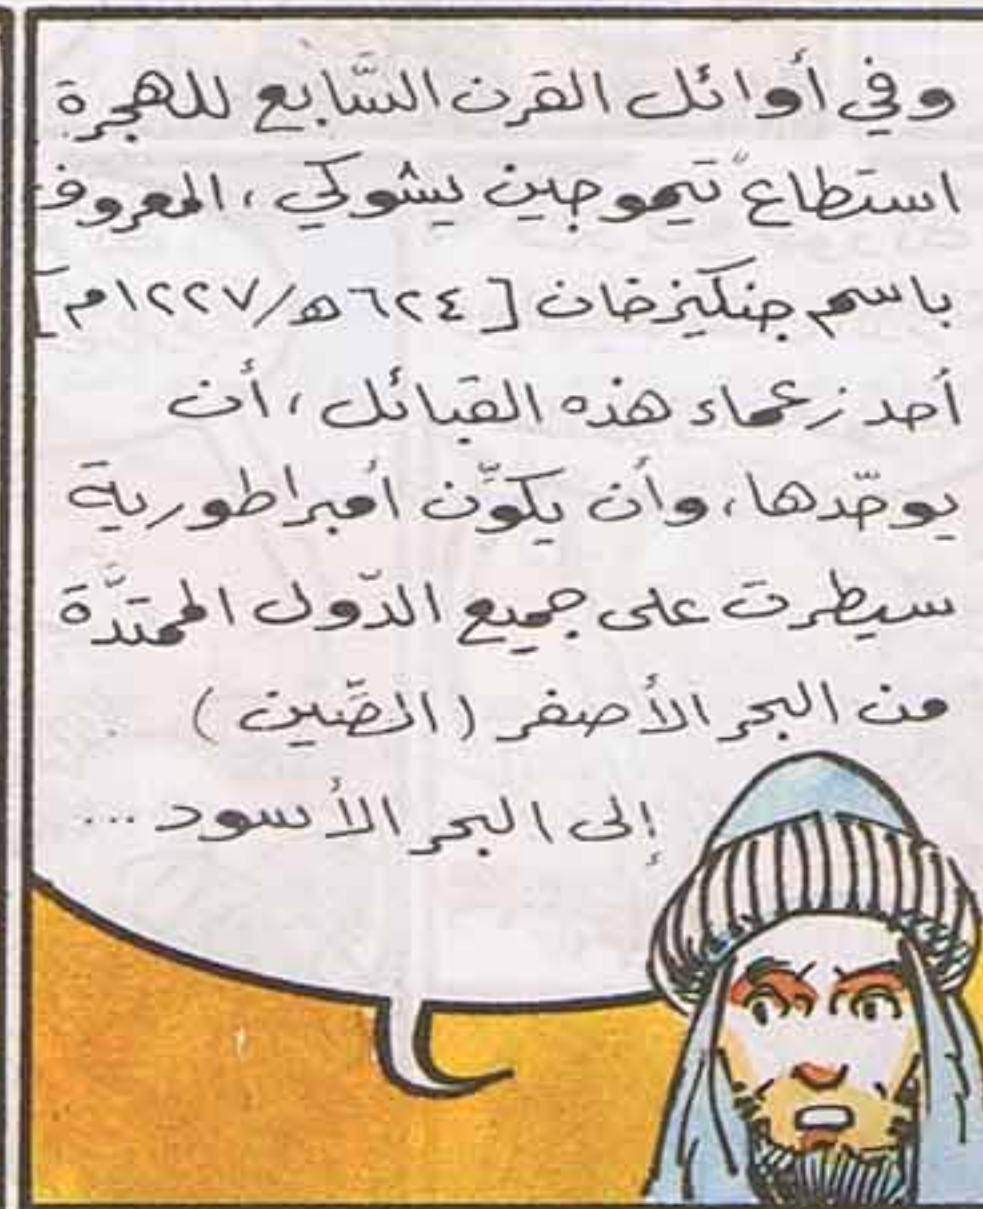 وفي أوائل القرن السَّابع للهجرة
استطاع تيموجين يشوكي، المعروف
باسم جنكيزخان [٦٢٤هـ/١٢٢٧م]
أحد زعماء هذه القبائل، أن
يوحّدها، وأن يكوِّن أمبراطورية
سيطرت على جميع الدّول الممتدَّة
من البحر الأصفر (الصِّين)
إلى البحر الأسود ...